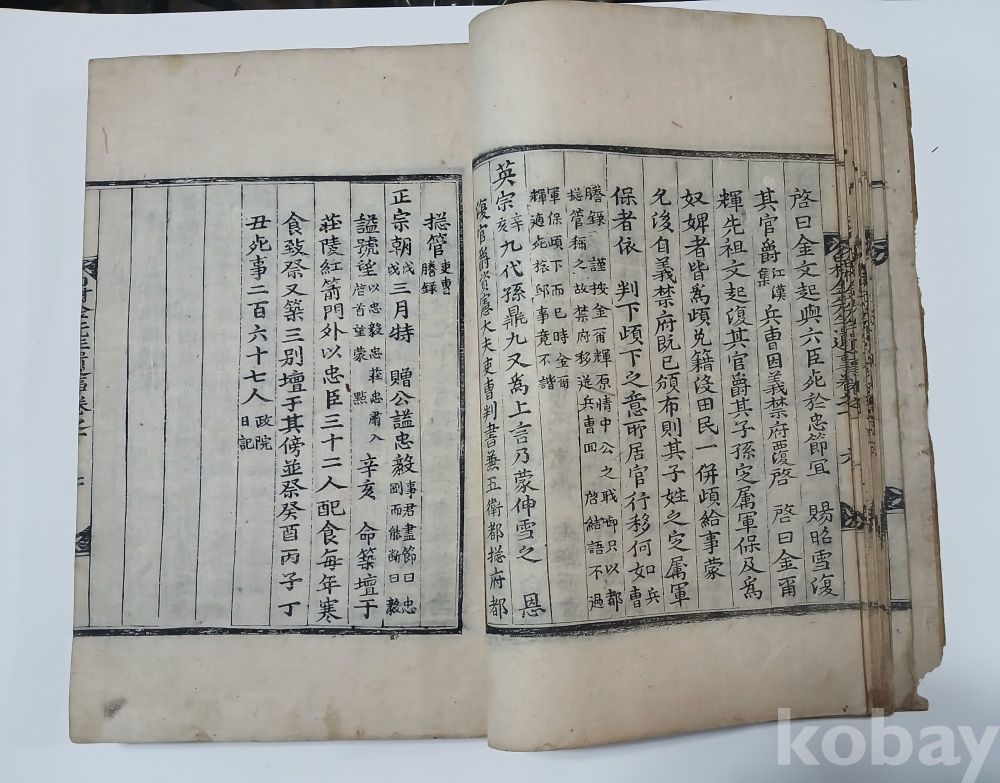 啓曰金文起與六臣死於忠節宜 賜昭雪復
其官爵江漢集兵曹因義禁府覆啓 啓曰金爾
輝先祖文起復其官爵其子孫定属軍保及爲
奴婢者皆爲頉免籍沒田民一併頉給事蒙
允後自義禁府旣已頒布則其子姓之定属軍
保者依 判下頉下之意所居官行移何如兵曹
謄錄 謹按金爾輝原情中公之職啣只以都
揔管稱之故禁府移送兵曹回 啓結語不過
軍保頉下而已時金爾
輝適死旅邸事竟不諧
英宗辛亥九代孫鼎九又爲上言乃蒙伸雪之 恩
復官爵資憲大夫吏曹判書兼五衛都揔府都
揔管吏曹謄錄
正宗朝戊戌三月特 贈公謚忠毅事君盡節曰忠剛而能斷曰毅
謚號望以忠毅忠莊忠肅入啓首望蒙點 辛亥 命築壇于
莊陵紅箭門外以忠臣三十二人配食每年寒
食致祭又築三別壇于其傍並祭癸酉丙子丁
丑死事二百六十七人政院日記
kobay